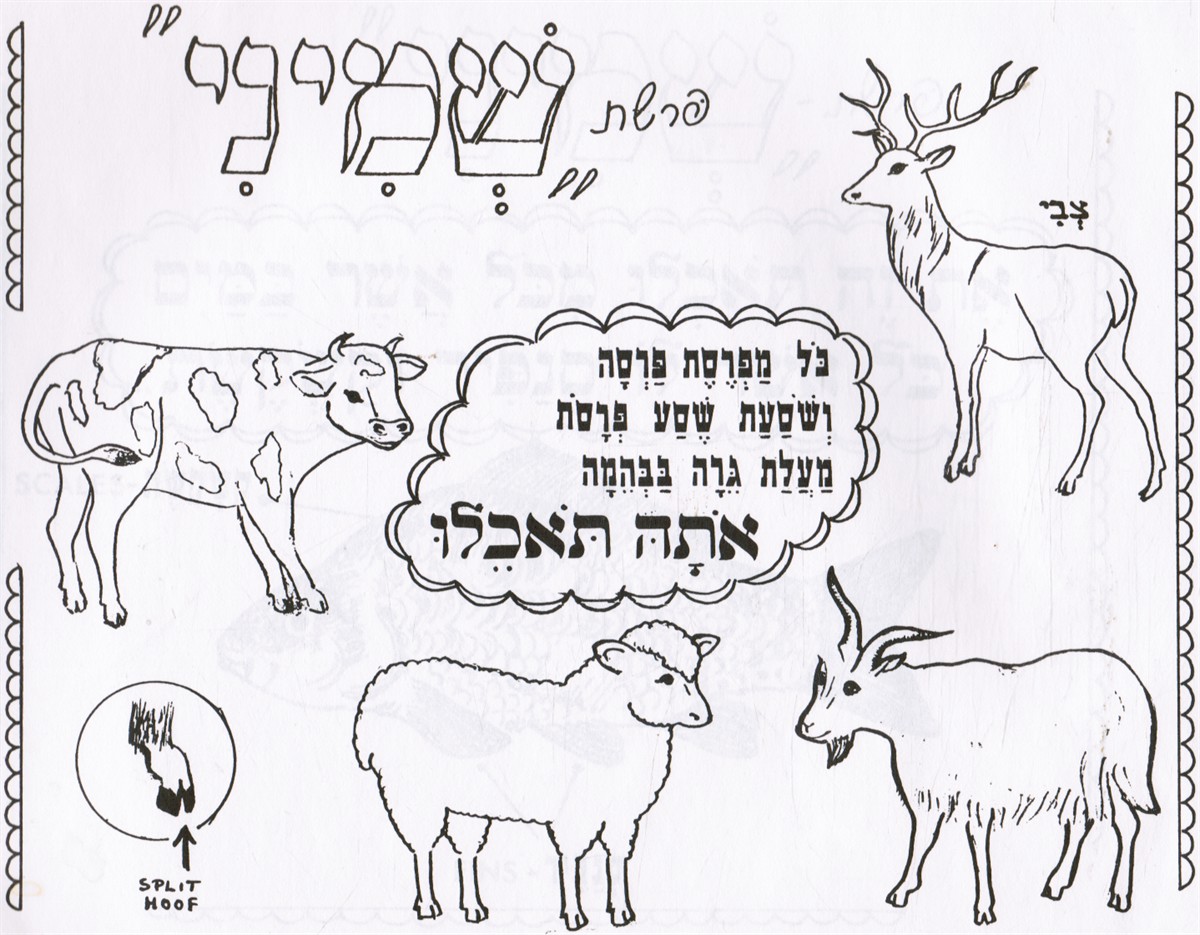 פרשת "שְׁמִינִי"
צְבִי
כֹּל מַפְרֶסֶת פַּרְסָה
וְשֹׁסַעַת שֶׁסַע פְּרָסֹת
מַעֲלַת גֵּרָה בַּבְּהֵמָה
אֹתָהּ תֹּאכֵלוּ
SPLIT
HOOF